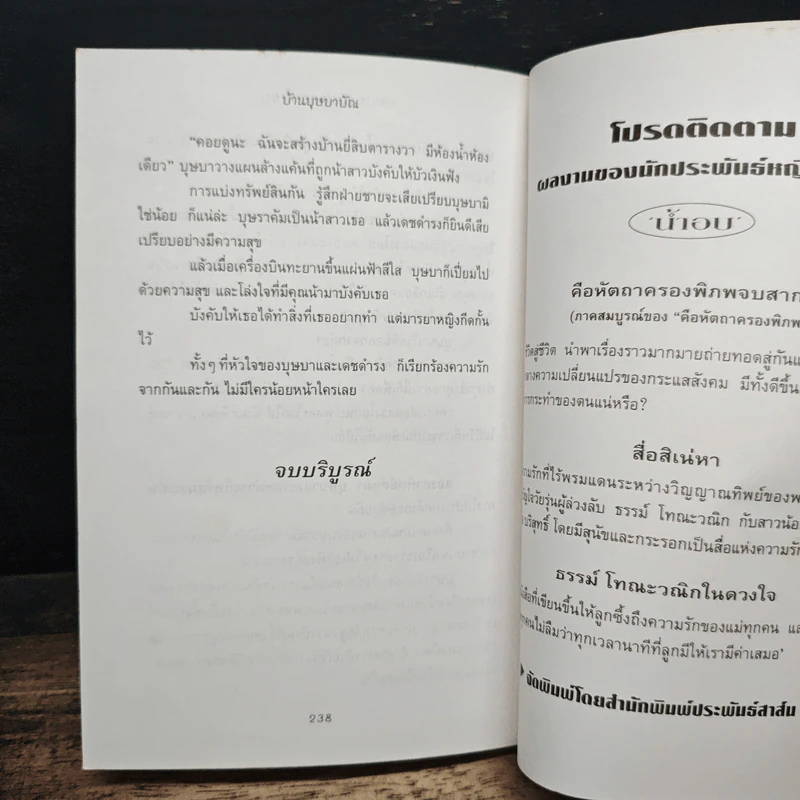 บ้านบุษบาบัณ
“คอยดูนะ ฉันจะสร้างบ้านยี่สิบตารางวา มีห้องน้ำห้อง
เดียว” บุษบาวางแผนล้างแค้นที่ถูกน้าสาวบังคับให้บัวเงินฟัง
การแบ่งทรัพย์สินกัน รู้สึกฝ่ายชายจะเสียเปรียบบุษบามิ
ใช่น้อย ก็แน่ล่ะ บุษราคัมเป็นน้าสาวเธอ แล้วเดชดำรงก็ยินดีเสีย
เปรียบอย่างมีความสุข
แล้วเมื่อเครื่องบินทะยานขึ้นแผ่นฟ้าสีใส บุษบาก็เปี่ยมไป
ด้วยความสุข และโล่งใจที่มีคุณน้ามาบังคับเธอ
บังคับให้เธอได้ทำสิ่งที่เธออยากทำ แต่มารยาหญิงกีดกั้น
ไว้
ทั้งๆ ที่หัวใจของบุษบาและเดชดำรง ก็เรียกร้องความรัก
จากกันและกัน ไม่มีใครน้อยหน้าใครเลย
จบบริบูรณ์
238
โปรดติดตาม
ผลงานของนักประพันธ์หญิ
‘น้ำอบ’
คือหัตถาครองพิภพจบสาก
(ภาคสมบูรณ์ของ “คือหัตถาครองพิภพ
ชีวิตสู่ชีวิต นำพาเรื่องราวมากมายถ่ายทอดสู่กันแ
างความเปลี่ยนแปรของกระแสสังคม มีทั้งดีขึ้น
การกระทำของตนแน่หรือ?
สื่อสิเน่หา
ความรักที่ไร้พรมแดนระหว่างวิญญาณทิพย์ของพ
วัยรุ่นผู้ล่วงลับ ธรรม์ โทณะวณิก กับสาวน้อ
บริสุทธิ์ โดยมีสุนัขและกระรอกเป็นสื่อแห่งความรัก
ธรรม์ โทณะวณิกในดวงใจ
สือที่เขียนขึ้นให้ลูกซึ้งถึงความรักของแม่ทุกคน แล
ทุกคนไม่ลืมว่าทุกเวลานาทีที่ลูกมีให้เรามีค่าเสมอ’
จัดพิมพ์โดยสำนักพิมพ์ประพันธ์สาส์น